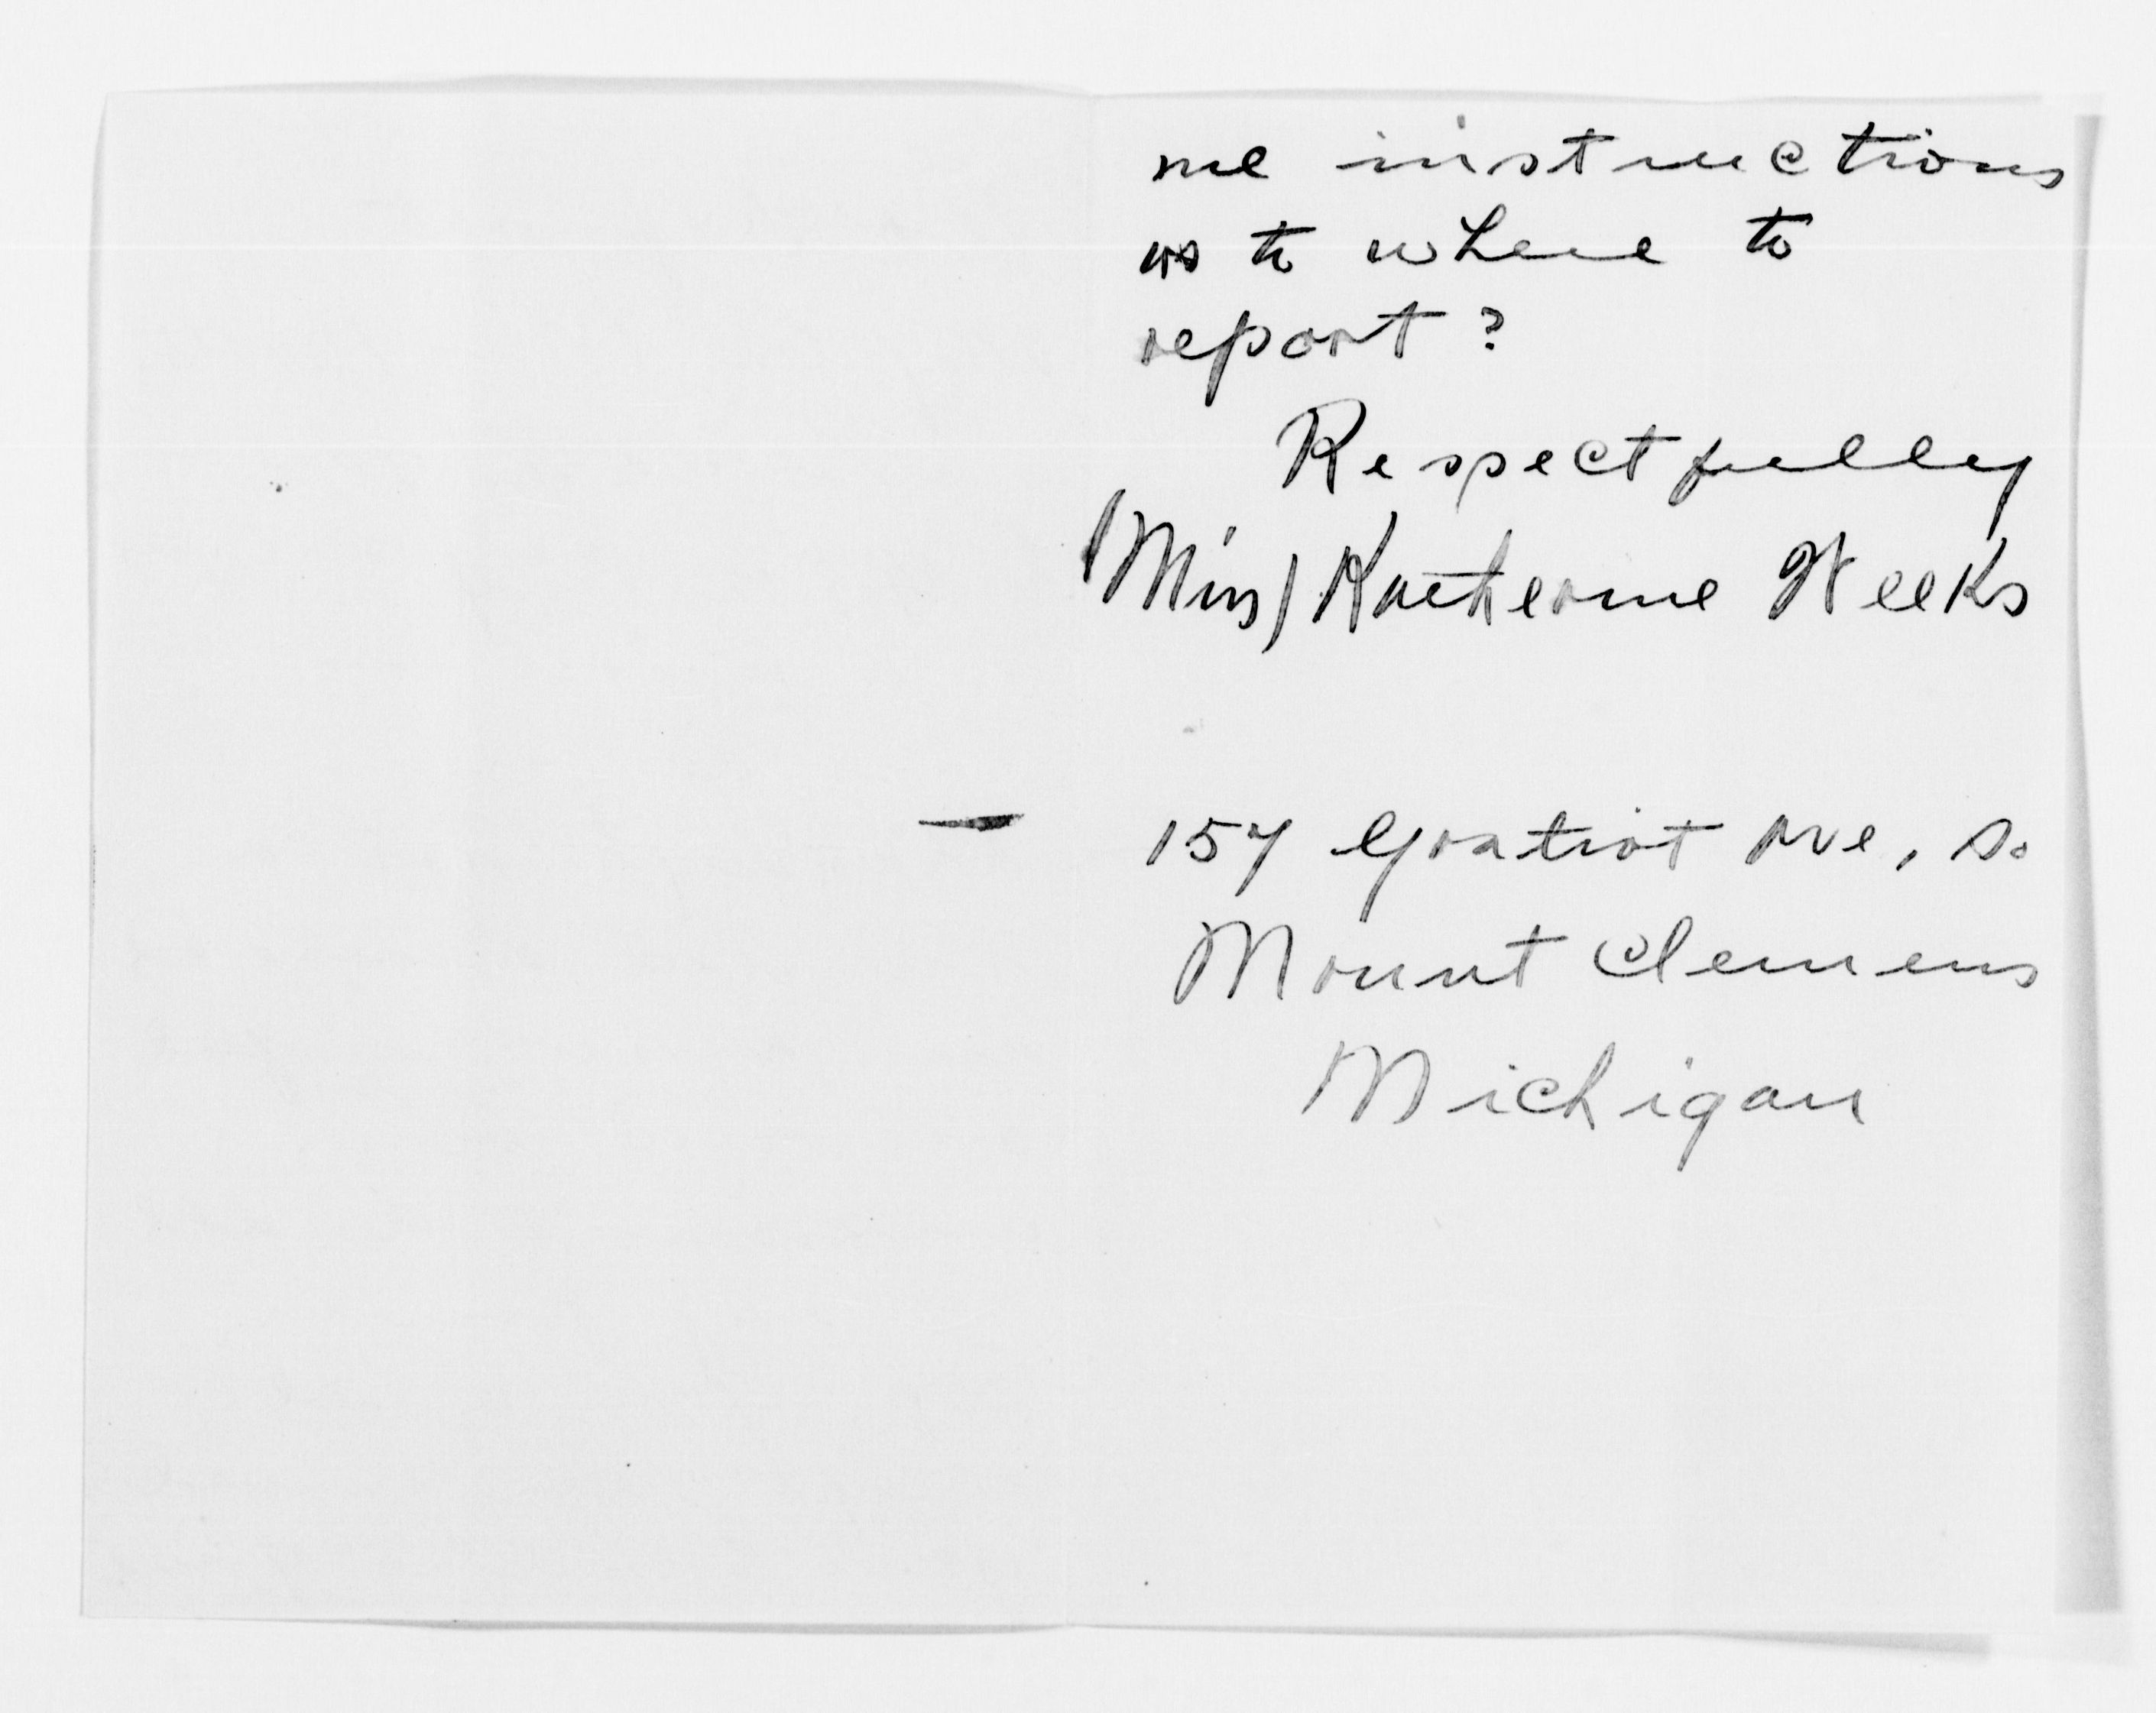 me instructions
as to where to
report?
Respectfully
(Miss) Katherine Weeks
157 Gratiot Ave, So
Mount Clemens
Michigan